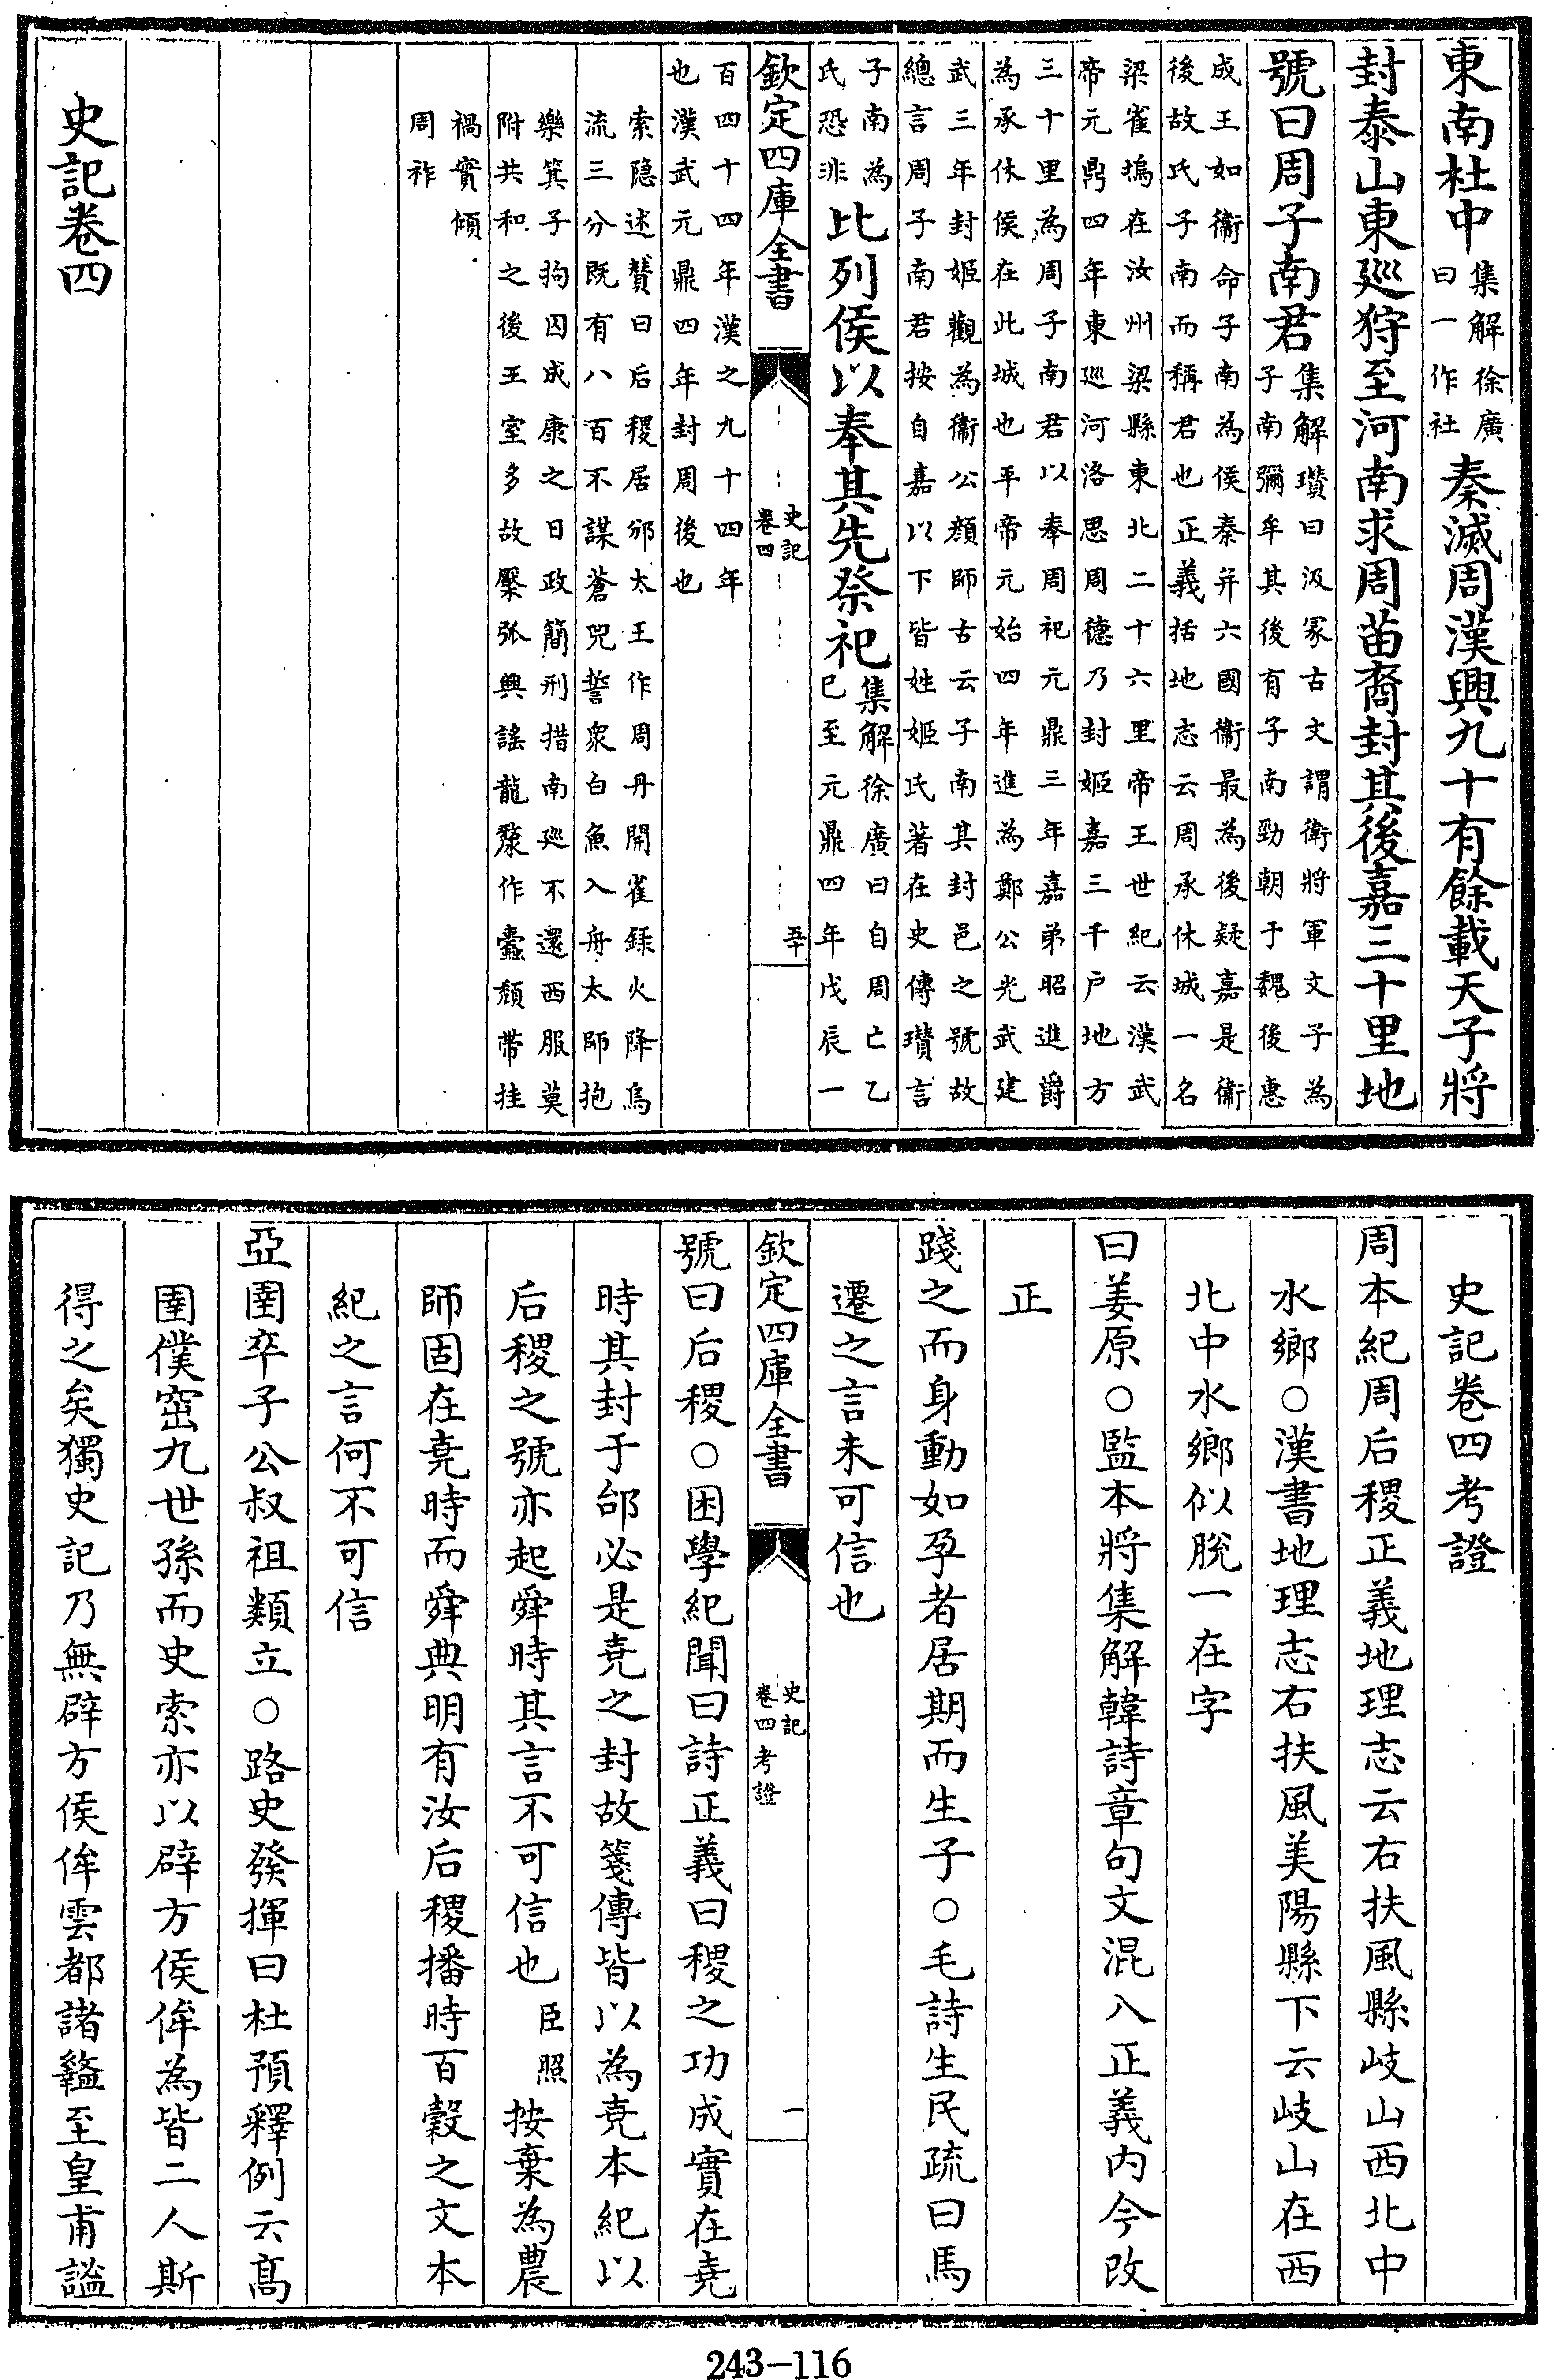 東南杜中集解徐廣曰一作社秦滅周漢興九十有餘載天子將
封泰山東廵狩至河南求周苗裔封其後嘉三十里地
號曰周子南君集解瓚曰汲冢古文謂衛將軍文子為子南彌牟其後有子南勁朝于魏後惠
成王如衛命子南為侯秦并六國衛最為後疑嘉是衛後故氏子南而稱君也正義括地志云周承休城一名
梁雀塢在汝州梁縣東北二十六里帝王世紀云漢武帝元鼎四年東廵河洛思周德乃封姬嘉三千户地方
三十里為周子南君以奉周祀元鼎三年嘉弟昭進爵為承休侯在此城也平帝元始四年進為鄭公光武建
武三年封姬觀為衛公顔師古云子南其封邑之號故總言周子南君按自嘉以下皆姓姬氏著在史傳瓚言
子南為氏恐非比列侯以奉其先祭祀集解徐廣曰自周亡乙巳至元鼎四年戊辰一
欽定四庫全書 史記卷四 五十
百四十四年漢之九十四年也漢武元鼎四年封周後也
索隱述贊曰后稷居邠太王作周丹開雀錄火降烏流三分既有八百不謀蒼兕誓衆白魚入舟太師抱
樂箕子拘囚成康之日政簡刑措南廵不還西服莫附共和之後王室多故檿弧興謡龍漦作蠹頽帶挂
禍實傾周祚
史記卷四
史記卷四考證
周本紀周后稷正義地理志云右扶風縣岐山西北中
水鄉○漢書地理志右扶風美陽縣下云岐山在西
北中水鄉似脫一在字
曰姜原○監本將集解韓詩章句文混入正義内今改
正
踐之而身動如孕者居期而生子○毛詩生民疏曰馬
遷之言未可信也
欽定四庫全書 史記卷四考證 一
號曰后稷○困學紀聞曰詩正義曰稷之功成實在堯
時其封于邰必是堯之封故箋傳皆以為堯本紀以
后稷之號亦起舜時其言不可信也臣照按棄為農
師固在堯時而舜典明有汝后稷播時百穀之文本
紀之言何不可信
亞圉卒子公叔祖類立○路史發揮曰杜預釋例云髙
圉僕窋九世孫而史索亦以辟方侯侔為皆二人斯
得之矣獨史記乃無辟方侯侔雲都諸盩至皇甫謐
243-116